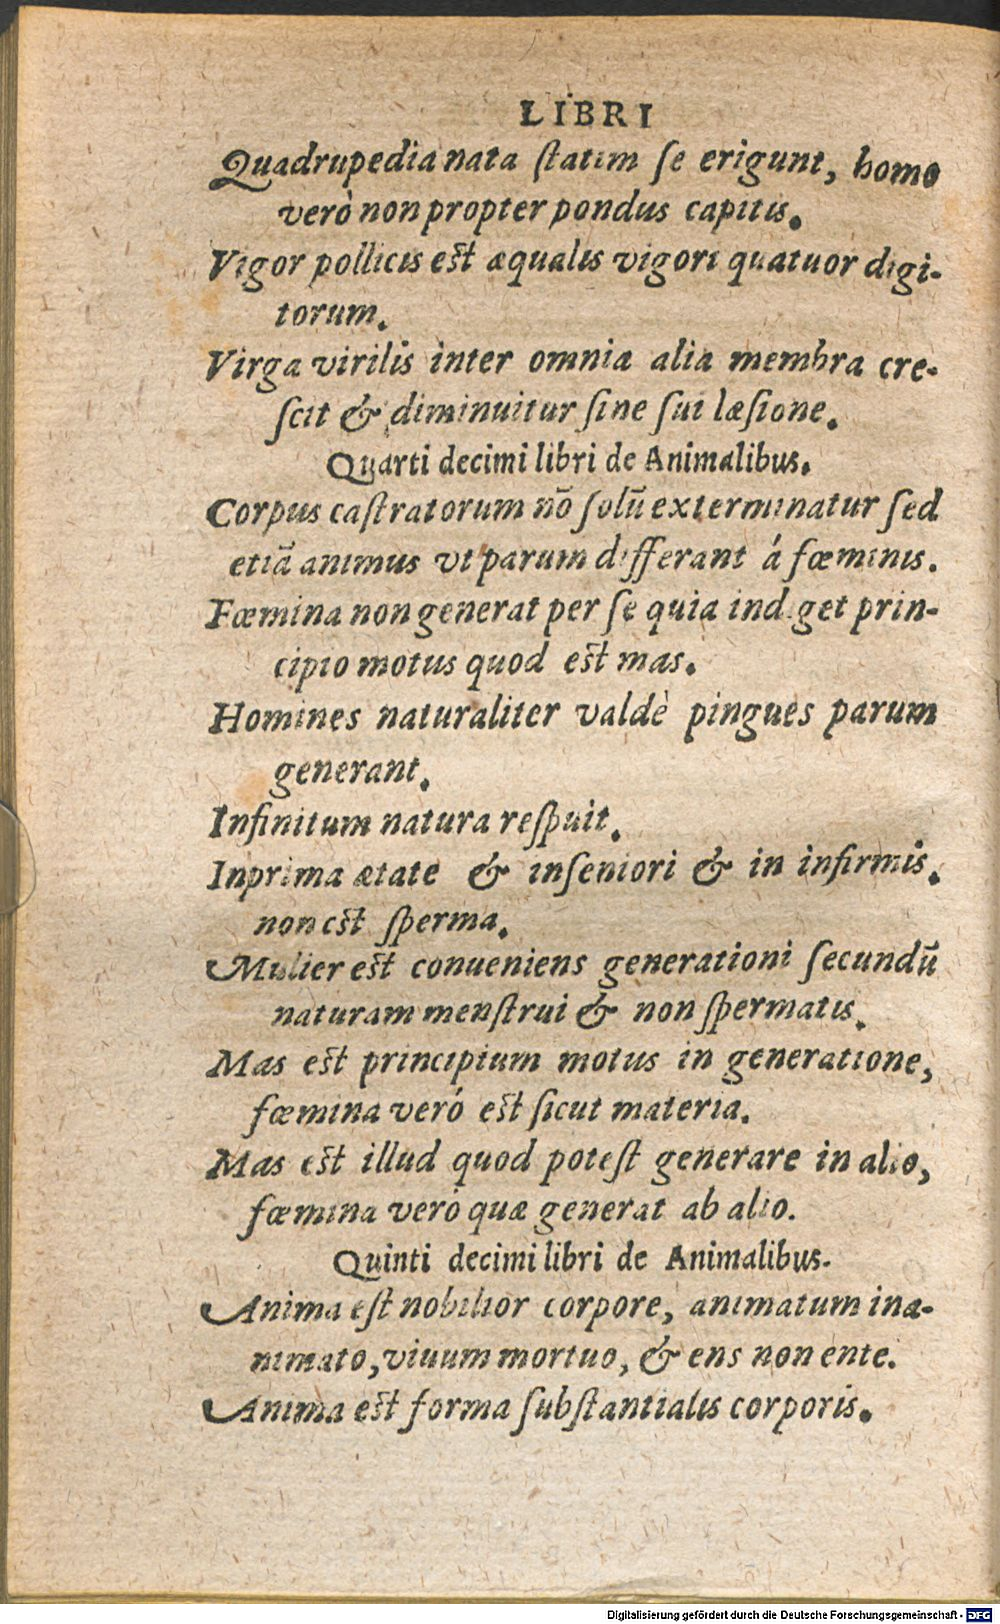 LIBRI
Quadrupedia nata ſtatim ſe erigunt, homo
verò non propter pondus capitis.
Vigor pollicis eſt æqualis vigori quatuor digi-
torum.
Virga virilis inter omnia alia membra cre-
ſcit & diminuitur ſine ſui læſione.
Quarti decimi libri de Animalibus.
Corpus caſtratorum nõ ſolũ exterminatur ſed
etiã animus vt parum differant á fœminis.
Fœmina non generat per ſe quia indiget prin-
cipio motus quod eſt mas.
Homines naturaliter valdè pingues parum
generant.
Infinitum natura reſpuit.
Inprima ætate & inſeniori & in infirmis.
non eſt ſperma.
Mulier eſt conueniens generationi ſecundũ
naturam menſtrui & non ſpermatis.
Mas eſt principium motus in generatione,
fœmina veró eſt ſicut materia.
Mas eſt illud quod poteſt generare in alio,
fœmina verò quæ generat ab alio.
Quinti decimi libri de Animalibus.
Anima eſt nobilior corpore, animatum ina-
nimato, viuum mortuo, & ens non ente.
Anima eſt forma ſubſtantialis corporis.
Digitalisierung gefördert durch die Deutsche Forschungsgemeinschaft - DFG